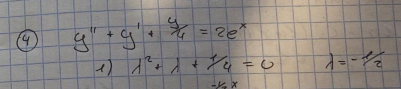 ④ y'' + y' + y/4 = 2e^x
1) λ² + λ + 1/4 = 0 λ = -1/2
-½x